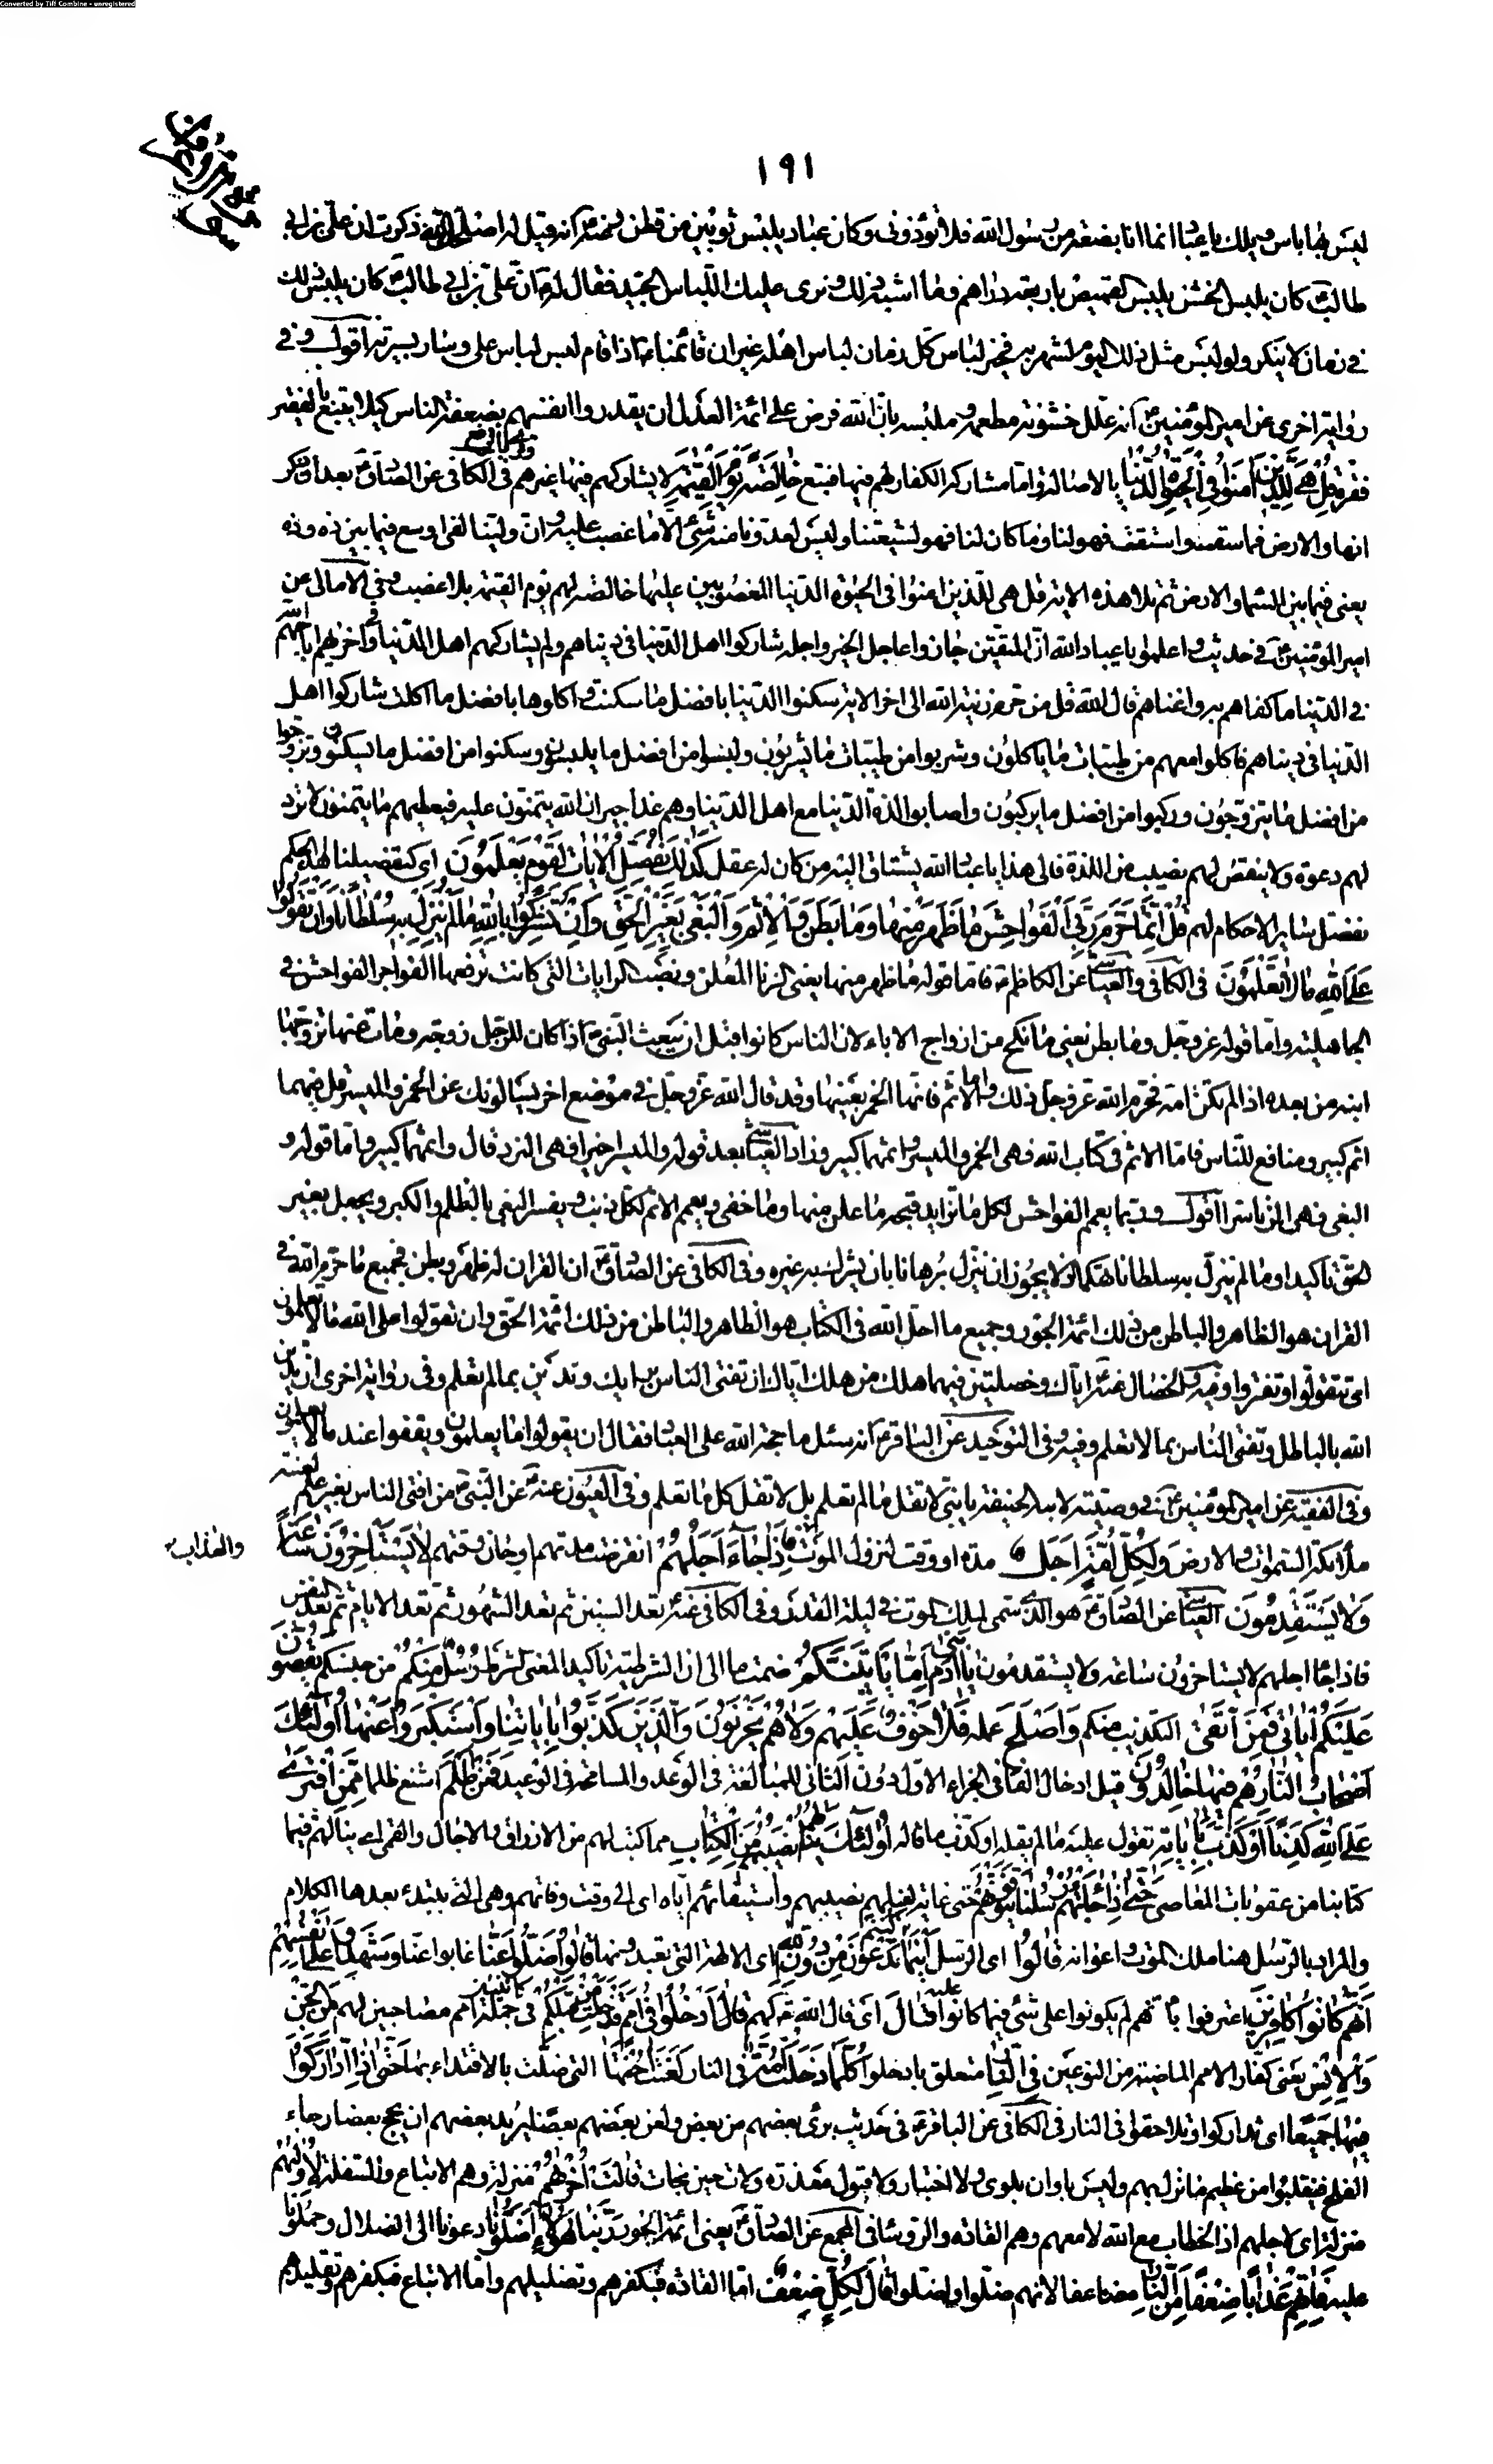 Converted by Tiff Combine - unregistered
١٩١
ليس بها باس ويلك يا عباد انما انا بضعة من رسول الله فلا تؤذوني وكان عباد يلبس ثوبين من قطن وعنه انه قيل له اصلحك الله ذكرت ان علي بن ابي
طالب كان يلبس الخشن يلبس القميص باربعة دراهم وما اشبه ذلك ونرى عليك اللباس الجيد فقال له ان علي بن ابي طالب كان يلبس ذلك
في زمان لا ينكر ولو لبس مثل ذلك اليوم لشهر به فخير لباس كل زمان لباس اهله غير ان قائمنا اذا قام لبس لباس علي وسار بسيرته اقول وفي
رواية اخرى عن امير المؤمنين انه علل خشونة مطعمه وملبسه بان الله فرض على ائمة العدل ان يقدروا انفسهم بضعفة الناس كيلا يتبيغ بالفقير
فقره قل هي للذين امنوا في الحيوة الدنيا بالاصالة واما مشاركة الكفار لهم فيها فتبع خالصة يوم القيمة لا يشاركهم فيها غيرهم في الكافي عن الصادق بعد ان ذكر
انهار الارض فما سقت واستقت فهو لنا وما كان لنا فهو لشيعتنا وليس لعدونا منه شئ الا ما غصب عليه وان ولينا لفي اوسع فيما بين ذه وذه
يعني فيما بين السماء والارض ثم تلا هذه الاية قل هي للذين امنوا في الحيوة الدنيا المغصوبين عليها خالصة لهم يوم القيمة بلا غصب وفي الامالي عن
امير المؤمنين في حديث واعلموا يا عباد الله ان المتقين حازوا عاجل الخير واجله شاركوا اهل الدنيا في دنياهم ولم يشاركهم اهل الدنيا في اخرتهم اباحهم الله
في الدنيا ما كفاهم به واغناهم قال الله قل من حرم زينة الله الى اخر الاية سكنوا الدنيا بافضل ما سكنت واكلوها بافضل ما اكلت شاركوا اهل
الدنيا في دنياهم فاكلوا معهم من طيبات ما ياكلون وشربوا من طيبات ما يشربون ولبسوا من افضل ما يلبسون وسكنوا من افضل ما يسكنون وتزوجوا
من افضل ما يتزوجون وركبوا من افضل ما يركبون واصابوا لذة الدنيا مع اهل الدنيا وهم غدا جيران الله يتمنون عليه فيعطيهم ما يتمنون لا ترد
لهم دعوة ولا ينقص لهم نصيب من اللذة فالى هذا يا عباد الله يشتاق اليه من كان له عقل كذلك نفصل الايات لقوم يعلمون اي كتفصيلنا لهذا الحكم
نفصل ساير الاحكام لهم قل انما حرم ربي الفواحش ما ظهر منها وما بطن والاثم والبغي بغير الحق وان تشركوا بالله ما لم ينزل به سلطانا وان تقولوا
على الله ما لا تعلمون في الكافي والعياشي عن الكاظم فاما قوله ما ظهر منها يعني الزنا المعلن ونصب الرايات التي كانت ترفعها الفواجر الفواحش في
الجاهلية واما قوله عز وجل وما بطن يعني ما نكح من ازواج الاباء لان الناس كانوا قبل ان يبعث النبي اذا كان للرجل زوجة ومات عنها تزوجها
ابنه من بعده اذا لم تكن امه فحرم الله عز وجل ذلك واما الاثم فانها الخمر بعينها وقد قال الله عز وجل في موضع اخر يسئلونك عن الخمر والميسر قل فيهما
اثم كبير ومنافع للناس فاما الاثم في كتاب الله فهي الخمر والميسر واثمهما كبير وزاد العياشي بعد قوله والميسر اخيرا فهي النرد قال واثمهما كبير واما قوله و
البغي فهي الزنا سرا اقول وربما يعم الفواحش لكل ما تزايد قبحه ما علن منها وما خفي ويعم الاثم لكل ذنب ويفسر البغي بالظلم والكبر ويجعل بغير
الحق تاكيدا وما لم ينزل به سلطانا تهكما اذ لا يجوز ان ينزل برهانا بان يشرك به غيره وفي الكافي عن الصادق ان القران له ظهر وبطن فجميع ما حرم الله في
القران هو الظاهر والباطن من ذلك ائمة الجور وجميع ما احل الله في الكتاب هو الظاهر والباطن من ذلك ائمة الحق وان تقولوا على الله ما لا تعلمون
اي تتقولوا وتفتروا وفيه والخصال عنه اياك وخصلتين فيهما هلك من هلك اياك ان تفتي الناس برايك وتدين بما لم تعلم وفي رواية اخرى ان تدين
الله بالباطل وتفتي الناس بما لا تعلم وفيه وفي التوحيد عن الباقر انه سئل ما حجة الله على العباد فقال ان يقولوا ما يعلمون ويقفوا عند ما لا يعلمون
وفي الفقيه عن امير المؤمنين في وصيته لابنه محمد بن الحنفية يا بني لا تقل ما لم تعلم بل لا تقل كل ما تعلم وفي العيون عنه عن النبي من افتى الناس بغير علم لعنته
ملائكة السموات والارض ولكل امة اجل مدة او وقت لنزول الموت والعذاب فاذا جاء اجلهم انقرضت مدتهم او حان وقتهم لا يستاخرون ساعة
ولا يستقدمون العياشي عن الصادق هو الذي سمي لملك الموت في ليلة القدر وفي الكافي عنه تعد السنين ثم تعد الشهور ثم تعد الايام ثم تعد النفس
فاذا جاء اجلهم لا يستاخرون ساعة ولا يستقدمون يا بني ادم اما ياتينكم ضمت ما الى ان الشرطية تاكيدا لمعنى الشرط رسل منكم من جنسكم يقصون
عليكم اياتي فمن اتقى التكذيب منكم واصلح عمله فلا خوف عليهم ولا هم يحزنون والذين كذبوا باياتنا واستكبروا عنها اولئك
اصحاب النار هم فيها خالدون قيل ادخال الفاء في الجزاء الاول دون الثاني للمبالغة في الوعد والمسامحة في الوعيد فمن اظلم اشنع ظلما ممن افترى
على الله كذبا او كذب باياته تقول عليه ما لم يقله او كذب ما قاله اولئك ينالهم نصيبهم من الكتاب مما كتب لهم من الارزاق والاجال والقمي اي ينالهم ما في
كتابنا من عقوبات المعاصي حتى اذا جاءتهم رسلنا يتوفونهم حتى غاية لنيلهم نصيبهم واستيفائهم اياه اي الى وقت وفاتهم وهي التي يبتدء بعدها الكلام
والمراد بالرسل هنا ملك الموت واعوانه قالوا اي الرسل اينما كنتم تدعون من دون الله اي الالهة التي تعبدونها قالوا ضلوا عنا غابوا عنا وشهدوا على انفسهم
انهم كانوا كافرين اعترفوا بانهم لم يكونوا على شئ فيما كانوا عليه قال اي قال الله لهم ادخلوا في امم قد خلت من قبلكم كائنين في جملة امم مصاحبين لهم من الجن
والانس يعني كفار الامم الماضية من النوعين في النار متعلق بادخلوا كلما دخلت امة في النار لعنت اختها التي ضلت بالاقتداء بها حتى اذا اداركوا
فيها جميعا اي تداركوا وتلاحقوا في النار في الكافي عن الباقر في حديث برئ بعضهم من بعض ولعن بعضهم بعضا يريد بعضهم ان يحج بعضا رجاء
الفلج فيفلتوا من عظيم ما نزل بهم وليس باوان بلوى ولا اختبار ولا قبول معذرة ولات حين نجات قالت اخراهم منزلة وهم الاتباع والسفلة لاولاهم
منزلة اي لاجلهم اذ الخطاب مع الله لا معهم وهم القادة والرؤساء في المجمع عن الصادق يعني ائمة الجور ربنا هؤلاء اضلونا دعونا الى الضلال وحملونا
عليه فاتهم عذابا ضعفا من النار مضاعفا لانهم ضلوا واضلوا قال لكل ضعف اما القادة فبكفرهم وتضليلهم واما الاتباع فبكفرهم وتقليدهم